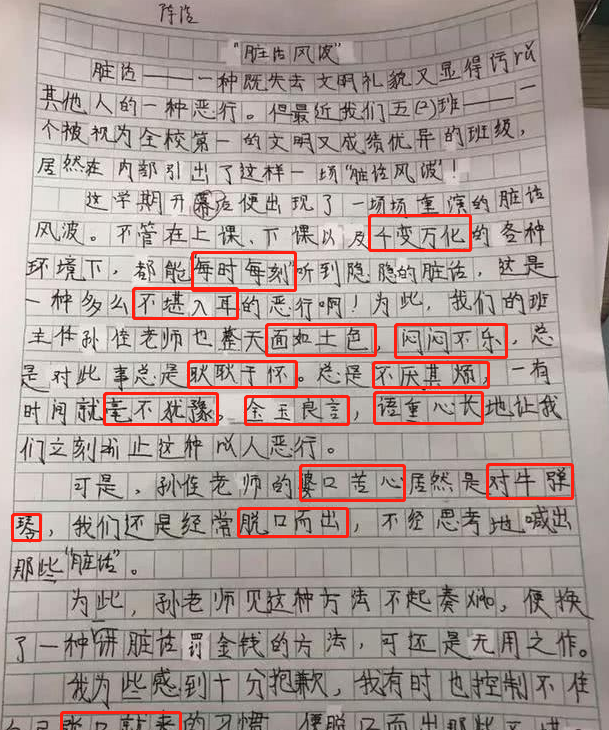 陈浩
"脏话风波"
脏话———一种既失去文明礼貌又显得污
其他人的一种恶行。但最近我们五(2)班———一
个被视为全校第一的文明又成绩优异的班级,
居然在内部引出了这样一场"脏话风波"!
这学期开幕后便出现了一场场重演的脏话
风波。不管在上课、下课以及千变万化的各种
环境下,都能"每时每刻"听到隐隐的脏话,这是
一种多么不堪入耳的恶行啊!为此,我们的班
主任孙佳老师也整天面如土色,闷闷不乐,总
是对此事总是耿耿于怀。总是不厌其烦,一有
时间就毫不犹豫,金玉良言,语重心长地让我
们立刻停止这种以人恶行。
可是,孙佳老师的婆口苦心居然是对牛弹
琴,我们还是经常脱口而出,不经思考地喊出
那些"脏话"。
为此,孙老师见这种方法不起奏xiào,便换
了一种"讲脏话罚金钱的方法,可还是无用之作。
我为些感到十分抱歉,我有时也控制不住
自己张口就来的习惯,便脱口而出那些